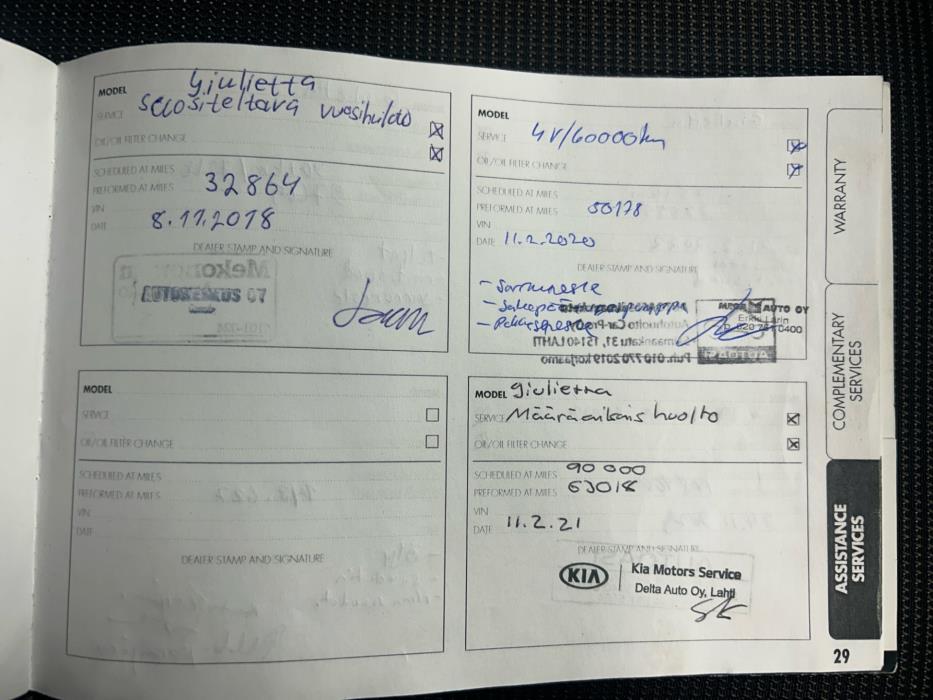 MODEL Giulietta
SERVICE suositeltava vuosihuolto
OIL/OIL FILTER CHANGE
SCHEDULED AT MILES
PREFORMED AT MILES 32864
VIN
DATE 8.11.2018
DEALER STAMP AND SIGNATURE
AUTOKESKUS OY
MODEL
SERVICE 4V/60000km
OIL/OIL FILTER CHANGE
SCHEDULED AT MILES
PREFORMED AT MILES 50178
VIN
DATE 11.2.2020
DEALER STAMP AND SIGNATURE
- Jarruneste
AUTO OY
Erkki Larin
MODEL
SERVICE
OIL/OIL FILTER CHANGE
SCHEDULED AT MILES
PREFORMED AT MILES
VIN
DATE
DEALER STAMP AND SIGNATURE
MODEL Giulietta
SERVICE Määräaikais huolto
OIL/OIL FILTER CHANGE
SCHEDULED AT MILES 90 000
PREFORMED AT MILES 63018
VIN
DATE 11.2.21
DEALER STAMP AND SIGNATURE
KIA Kia Motors Service
Delta Auto Oy, Lahti
WARRANTY
COMPLEMENTARY
SERVICES
ASSISTANCE
SERVICES
29